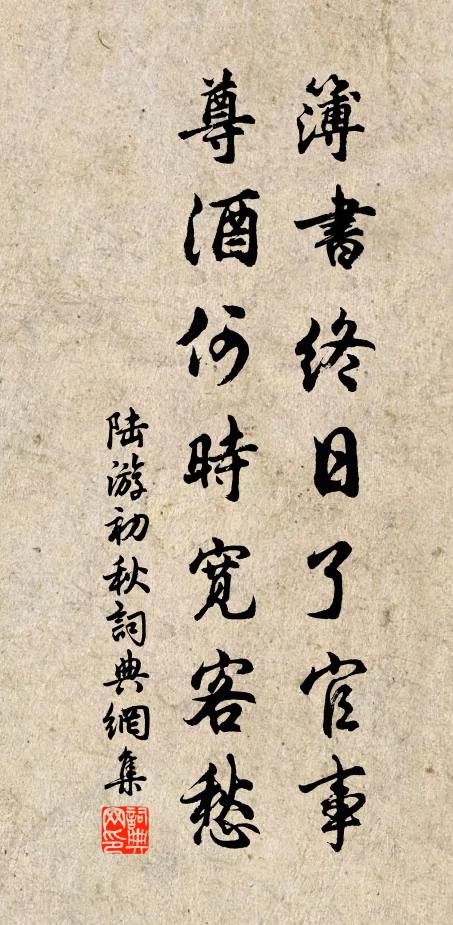 簿書終日了官事
尊酒何時寬客愁
陆游初秋詞典網集
詞典网印